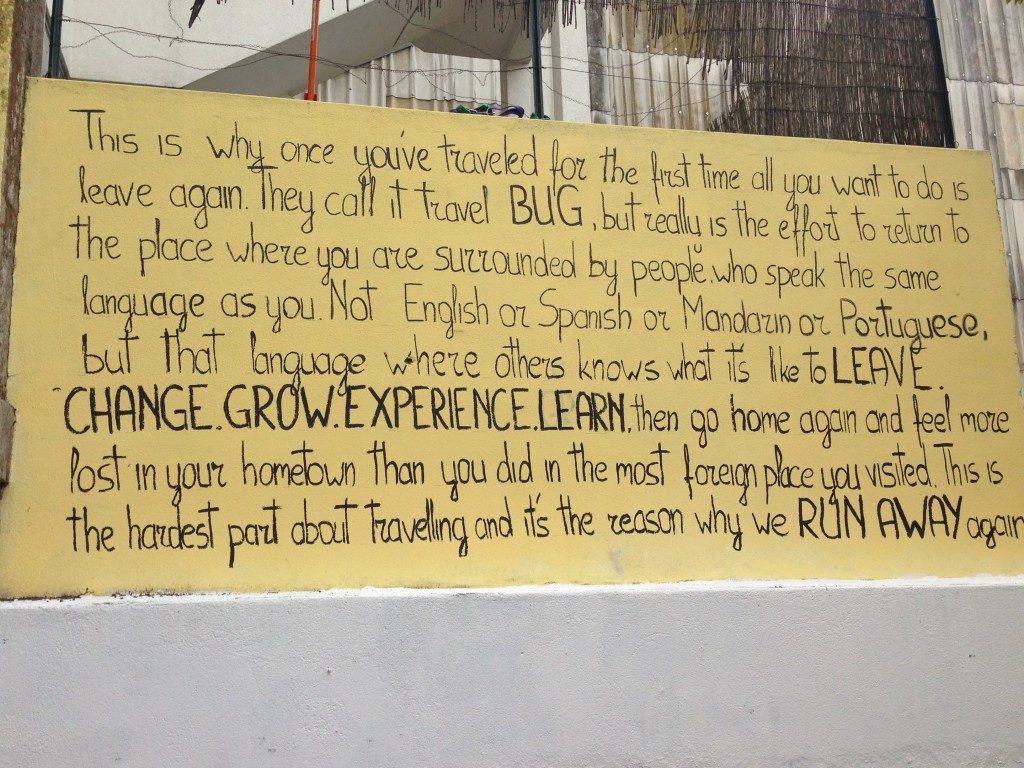 This is why once you've traveled for the first time all you want to do is
leave again. They call it travel BUG, but really is the effort to return to
the place where you are surrounded by people. who speak the same
language as you. Not English or Spanish or Mandarin or Portuguese,
but that language where others knows what it's like to LEAVE.
CHANGE. GROW. EXPERIENCE. LEARN, then go home again and feel more
lost in your hometown than you did in the most foreign place you visited. This is
the hardest part about travelling and it's the reason why we RUN AWAY again